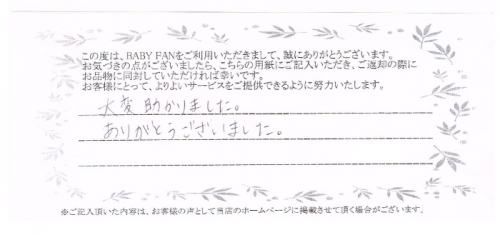 この度は、BABY FANをご利用いただきまして、誠にありがとうございます。
お気づきの点がございましたら、こちらの用紙にご記入いただき、ご返却の際に
お品物に同封していただければ幸いです。
お客様にとって、よりよいサービスをご提供できるように努力いたします。
大変助かりました。
ありがとうございました。
※ご記入頂いた内容は、お客様の声として当店のホームページに掲載させて頂く場合がございます。